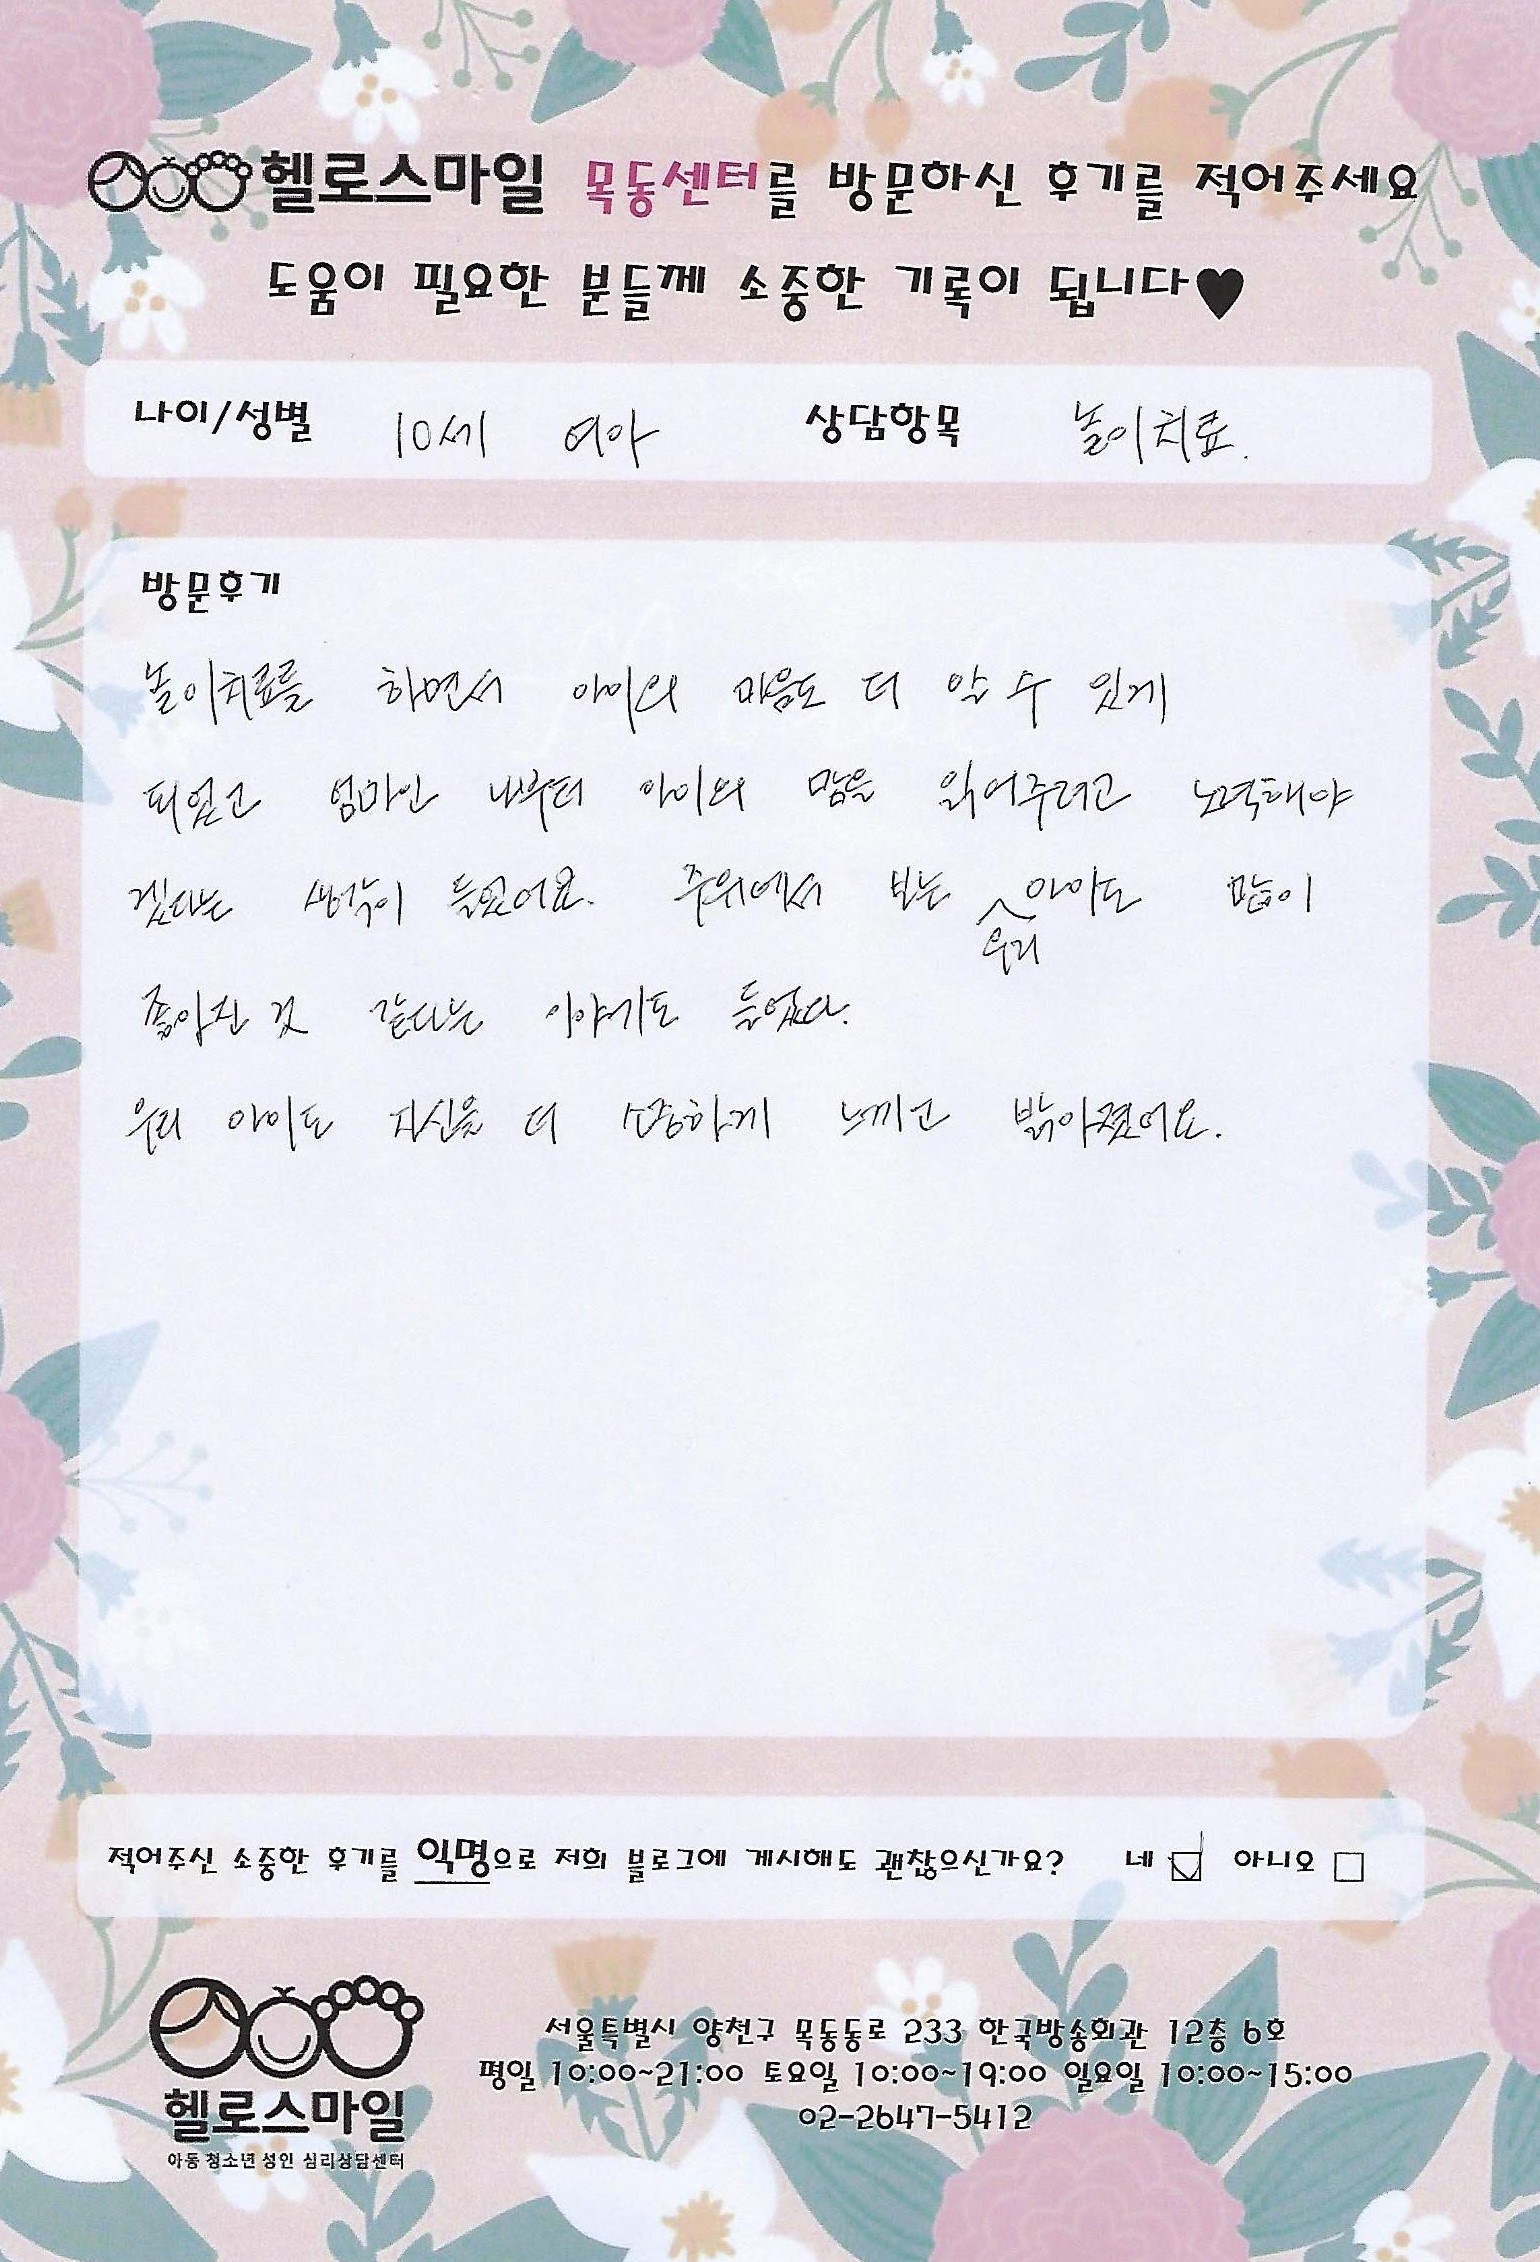 헬로스마일 목동센터를 방문하신 후기를 적어주세요
도움이 필요한 분들께 소중한 기록이 됩니다♥
나이/성별 10세 여아 상담항목 놀이치료.
방문후기
놀이치료를 하면서 아이의 마음도 더 알 수 있게
되었고 엄마인 나부터 아이의 맘을 읽어주려고 노력해야
겠다는 생각이 들었어요. 주위에서 보는 우리 아이도 많이
좋아진 것 같다는 이야기도 들었다.
우리 아이도 자신을 더 소중하게 느끼고 밝아졌어요.
적어주신 소중한 후기를 익명으로 저희 블로그에 게시해도 괜찮으신가요? 네 ☑ 아니오 □
헬로스마일
아동 청소년 성인 심리상담센터
서울특별시 양천구 목동동로 233 한국방송회관 12층 6호
평일 10:00~21:00 토요일 10:00~19:00 일요일 10:00~15:00
02-2647-5412